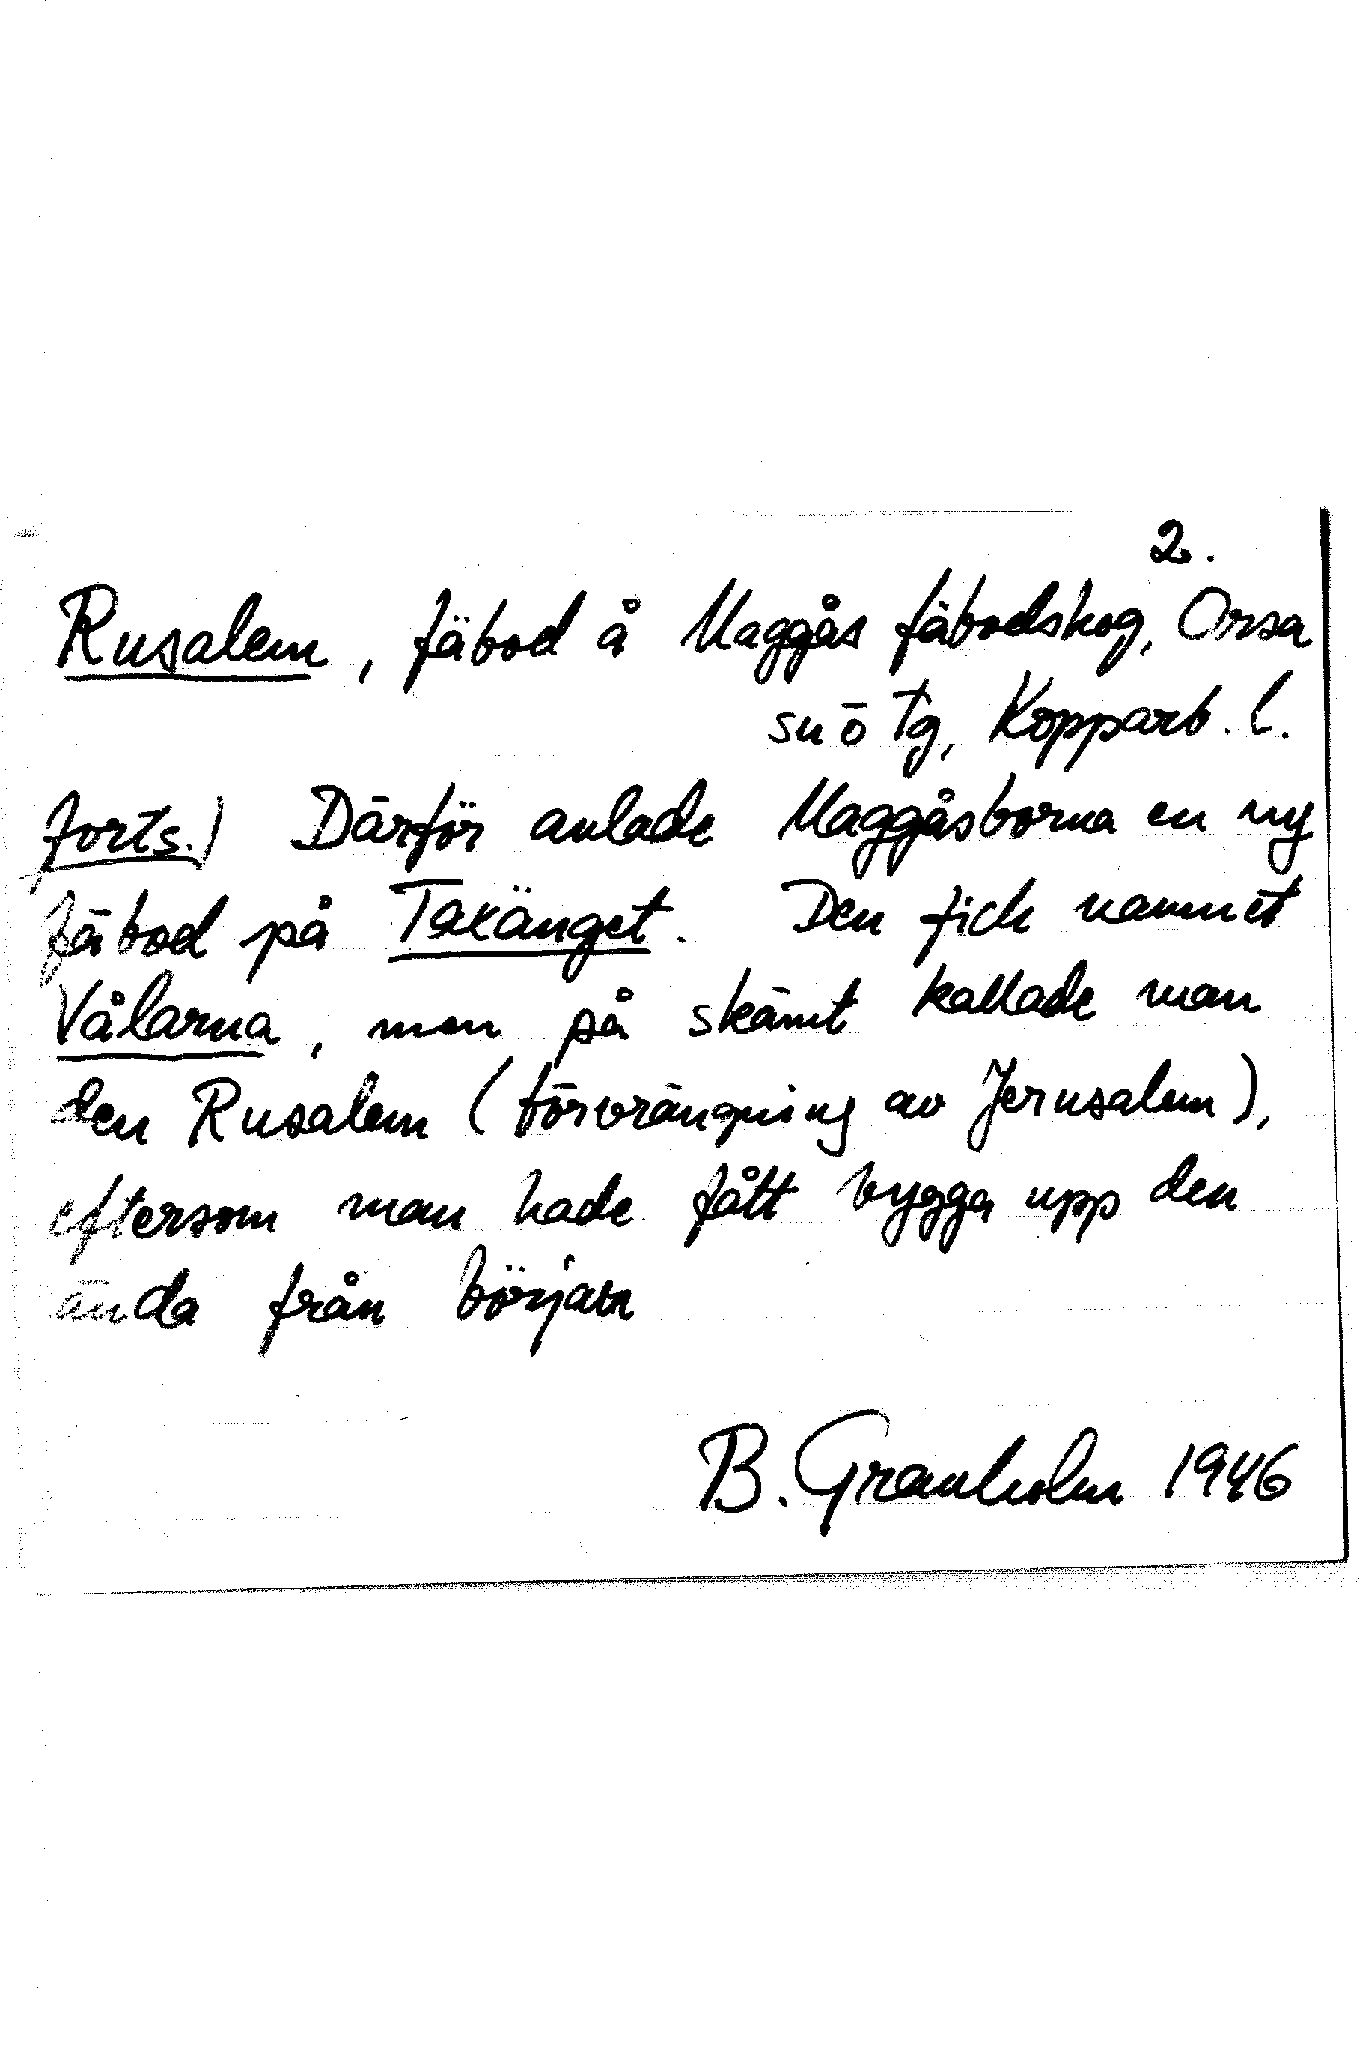 2.
Rusalem, fäbod å Maggås fäbodskog, Orsa
sn o tg, Kopparb. l.
forts.) Därför anlade Maggåsborna en ny
fäbod på Takänget. Den fick namnet
Vålarna, men på skämt kallade man
den Rusalem (förvrängning av Jerusalem),
eftersom man hade fått bygga upp den
ända från början
B. Granholm 1946